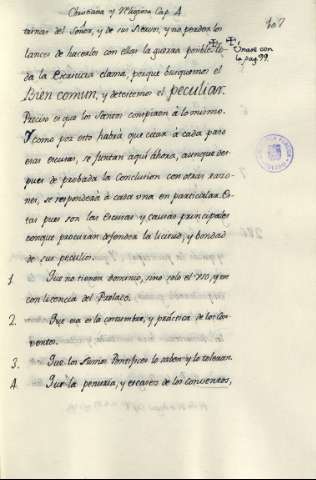 Christiana y Religiosa Cap. 4.
107
tarnas del Señor, y de sus siervos, y no perdonar
lances de hacerlos con ellos la guerra posible. to-
Únase con
la pag. 99.
da la Escritura clama, porque busquemos el
Bien comun, y detestemos el peculiar.
Preciso es que los Santos conspiren à lo mismo.
Y como por esto habrà que citar à cada paso
esas escusas, se juntan aqui ahora, aunque des-
pues de probada la Conclusion con otras razo-
nes, se responderà à cada una en particular. Es-
tas pues son las Escusas y causas principales
conque procuran defender la licitud, y bondad
de sus peculios.
1. Que no tienen dominio, sino solo el uso, y ese
con licencia del Prelado.
2. Que esa es la costumbre, y práctica de los Con-
ventos.
3. Que los Sumos Pontifices lo saben y lo toleran.
4. Que la penuria, y escasez de los conventos,